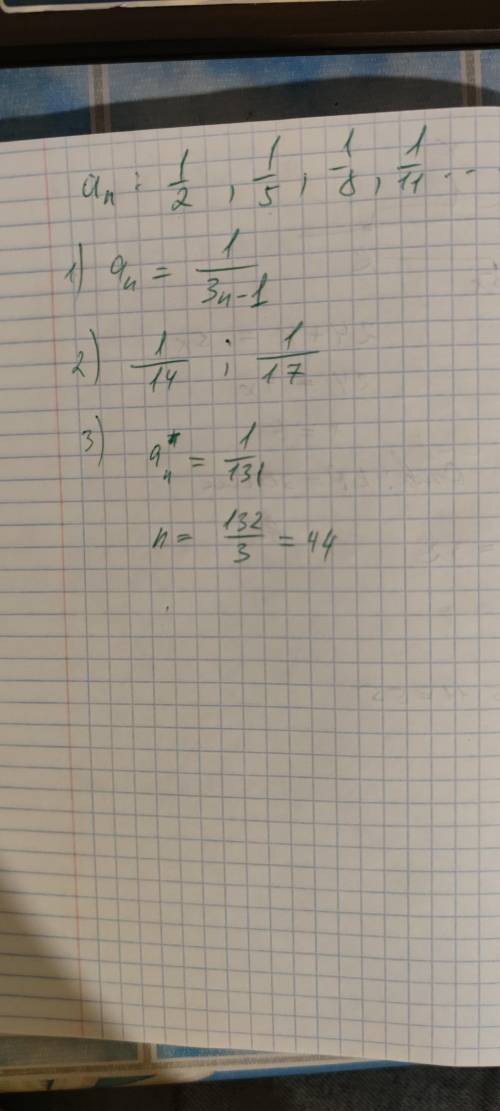 aₙ : 1/2 , 1/5 , 1/8 , 1/11 ...
1) aₙ = 1/(3n-1)
2) 1/14 ; 1/17
3) aₙ* = 1/131
n = 132/3 = 44